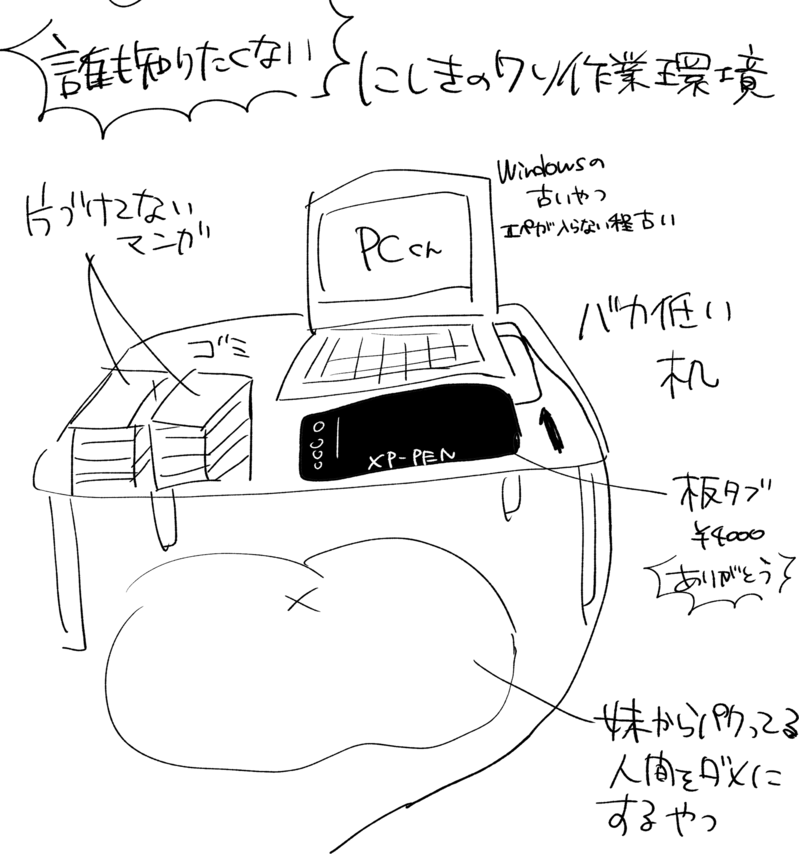 誰も知りたくない
にしきのクソ作業環境
Windowsの
古いやつ
エペが入らない程古い
片づけてない
マンガ
PCくん
ゴミ
バカ低い
机
XP-PEN
板タブ
¥4000
ありがとう
妹からパクってる
人間をダメに
するやつ